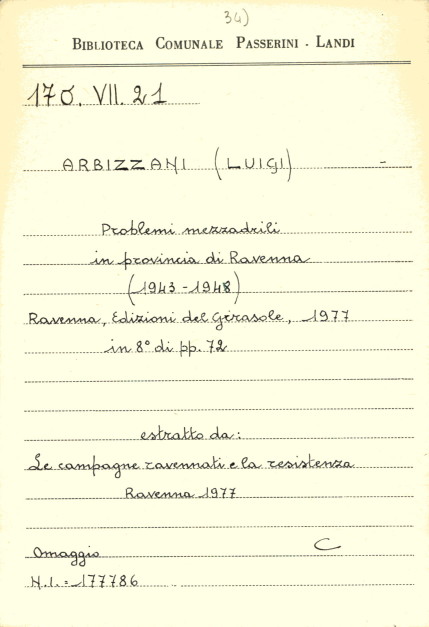 34)
BIBLIOTECA COMUNALE PASSERINI - LANDI
170. VII. 21
ARBIZZANI (LUIGI) -
Problemi mezzadrili
in provincia di Ravenna
(1943-1948)
Ravenna, Edizioni del Girasole, 1977
in 8° di pp. 72
estratto da:
Le campagne ravennati e la resistenza
Ravenna 1977
Omaggio C
N.I. = 177786